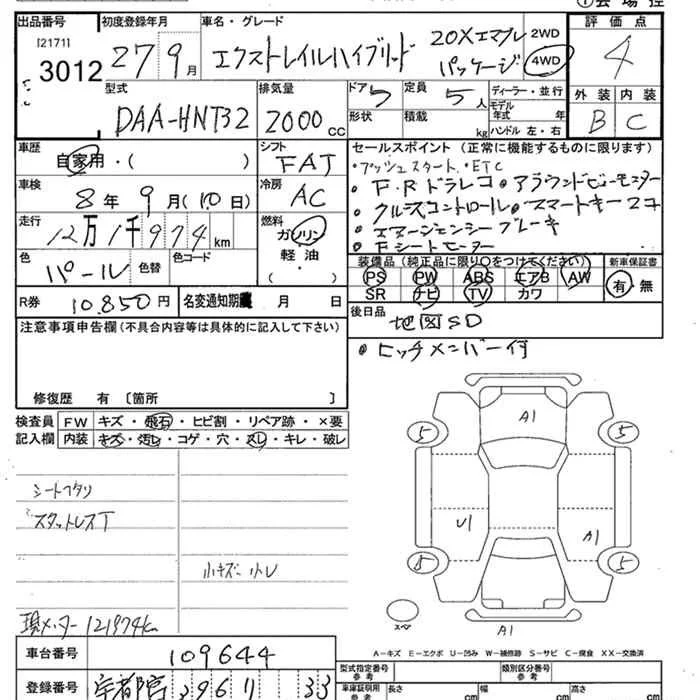 ①会場控
出品番号 [2171] 3012
初度登録年月 27 9月
車名・グレード エクストレイルハイブリッド 20Xエマブレ パッケージ
2WD 4WD
評価点 4
外装 内装
B C
型式 DAA-HNT32
排気量 2000cc
ドア 5 定員 5人
形状 積載 kg
ディーラー・並行
モデル年式 年式
ハンドル 左・右
車歴 自家用・( )
シフト FAT
車検 8年 9月(10日)
冷房 AC
走行 12万1千974km
燃料 ガソリン 軽油・( )
色 パール 色替 色コード
R券 10.850円 名変通知期 月 日
セールスポイント(正常に機能するものに限ります)
・プッシュスタート・ETC
・F.Rドラレコ・アラウンドビューモニター
・クルーズコントロール・スマートキー2コ
・エマージェンシーブレーキ
・Fシートヒーター
装備品(純正品に限り○をつけてください) 新車保証書
PS PW ABS エアB AW 有・無
SR ナビ TV カワ
後日品 地図SD
・ヒッチメンバー付
注意事項申告欄(不具合内容等は具体的に記入して下さい)
修復歴 有 〔箇所 〕
検査員記入欄 FW キズ・飛石・ヒビ割・リペア跡・×要
内装 キズ・汚レ・コゲ・穴・スレ・キレ・破レ
シートフタリ
スタットレスT
小キズ 小レ
現メーター121974km
車台番号 109644
登録番号 宇都宮 396 11 33
A1
5 5
U1 A1
5 5
スペア
A1
A-キズ E-エクボ U-凹み W-補修跡 S-サビ C-腐食 XX-交換済
型式指定番号 参考 類別区分番号 参考
車庫証明用 参考 長さ cm 幅 cm 高さ cm